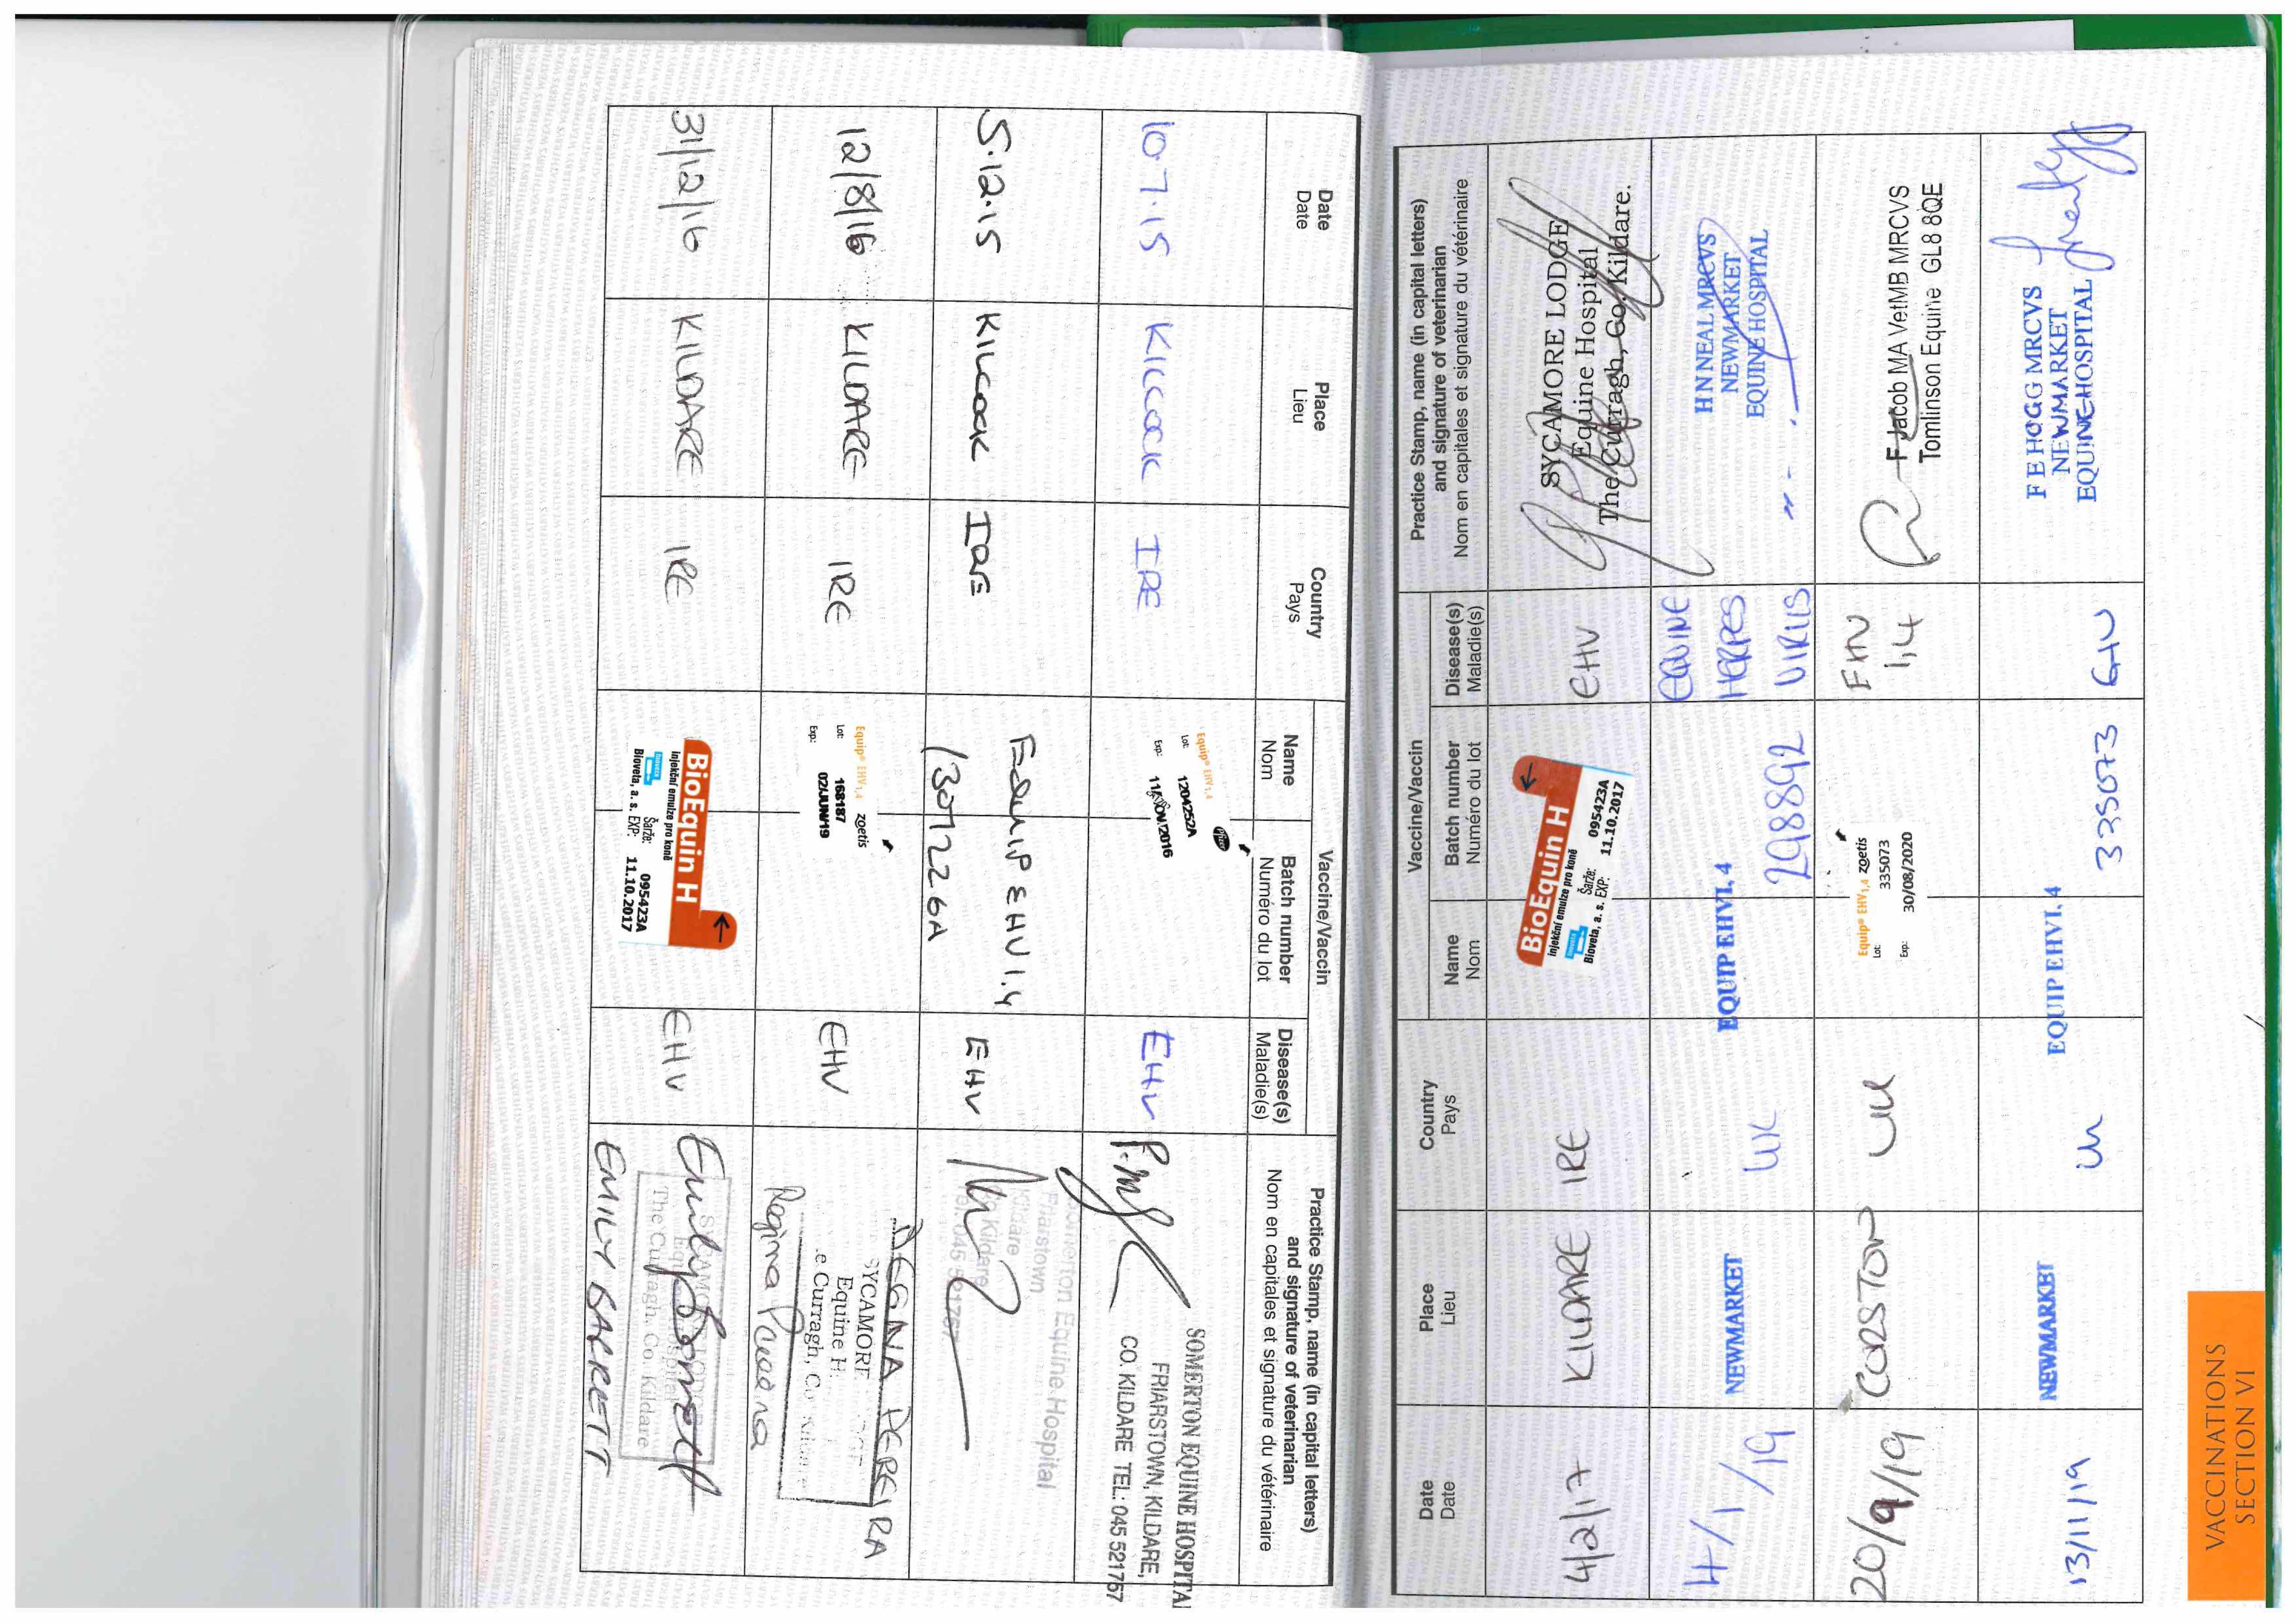 Date
Date
Place
Lieu
Country
Pays
Vaccine/Vaccin
Name
Nom
Batch number
Numéro du lot
Disease(s)
Maladie(s)
Practice Stamp, name (in capital letters)
and signature of veterinarian
Nom en capitales et signature du vétérinaire
10.7.15
KILCOCK
IRE
Equip® EHV1,4
Lot: 1204252A
Exp: 11/NOV/2016
Pfizer
EHV
SOMERTON EQUINE HOSPITAL
FRIARSTOWN, KILDARE,
CO. KILDARE TEL: 045 521767
5.12.15
KILCOCK
IRE
EQUIP EHV 1.4
1307226A
EHV
Somerton Equine Hospital
Friarstown
Kildare
Co Kildare
Tel: 045 521767
12/8/16
KILDARE
IRE
Equip® EHV1,4 zoetis
Lot: 168187
Exp: 02/JUN/19
EHV
REGINA PEREIRA
SYCAMORE
Equine H
e Curragh, Co Kildare
31/12/16
KILDARE
IRE
BioEquin H
injekční emulze pro koně
Šarže: 095423A
Bioveta, a. s. EXP: 11.10.2017
EHV
The Curragh, Co. Kildare
EMILY BARRETT
Date
Date
Place
Lieu
Country
Pays
Vaccine/Vaccin
Name
Nom
Batch number
Numéro du lot
Disease(s)
Maladie(s)
Practice Stamp, name (in capital letters)
and signature of veterinarian
Nom en capitales et signature du vétérinaire
4/2/17
KILDARE
IRE
BioEquin H
injekční emulze pro koně
Šarže: 095423A
Bioveta, a. s. EXP: 11.10.2017
EHV
SYCAMORE LODGE
Equine Hospital
The Curragh, Co. Kildare.
4/1/19
NEWMARKET
UK
EQUIP EHV1,4
298892
EQUINE
HERPES
VIRUS
H N NEAL MRCVS
NEWMARKET
EQUINE HOSPITAL
20/9/19
CORSTON
UK
Equip® EHV1,4 zoetis
Lot: 335073
Exp: 30/08/2020
EHV
1,4
F Jacob MA VetMB MRCVS
Tomlinson Equine GL8 8QE
13/11/19
NEWMARKET
UK
EQUIP EHV1,4
335073
EHV
F E HOGG MRCVS
NEWMARKET
EQUINE HOSPITAL
VACCINATIONS
SECTION VI